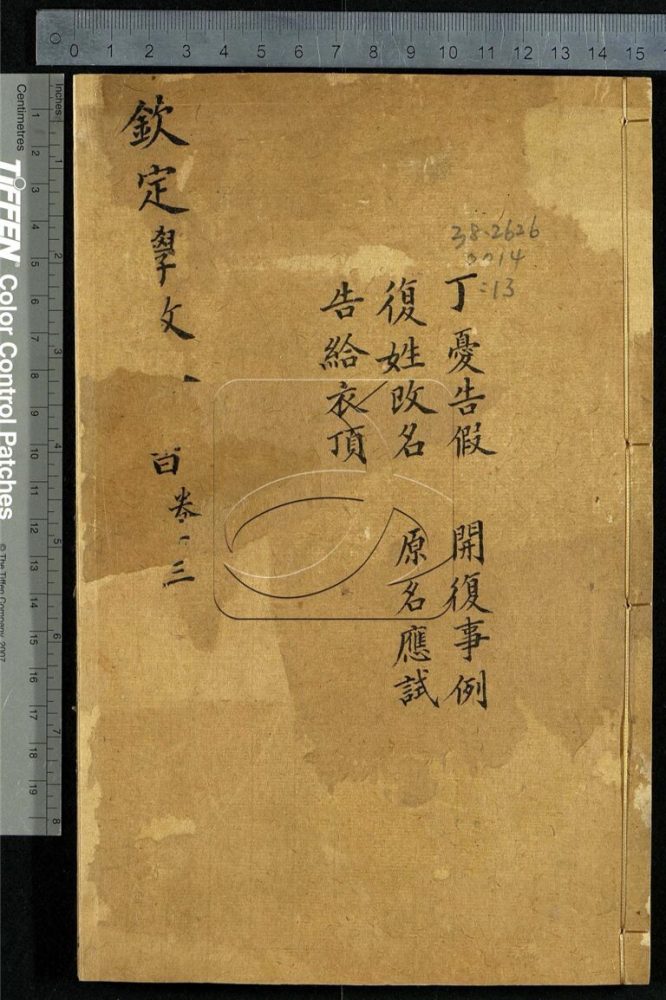 0 1 2 3 4 5 6 7 8 9 10 11 12 13 14 15
Inches 1 2 3 4 5 6 7 8
Centimetres 1 2 3 4 5 6 7 8 9 10 11 12 13 14 15 16 17 18 19
TIFFEN Color Control Patches
© The Tiffen Company, 2007
38-2626
0014
:13
丁憂告假 開復事例
復姓改名 原名應試
告給衣頂
欽定學文 卷 三